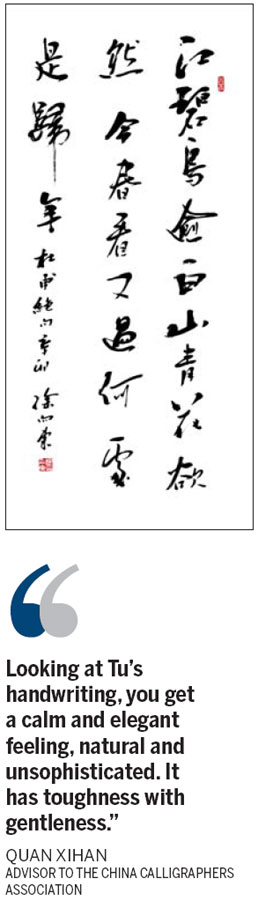 江碧鳥愈白山青花欲
然今春看又過何處
是歸年 杜甫絶句
“
Looking at Tu’s
handwriting, you get
a calm and elegant
feeling, natural and
unsophisticated. It
has toughness with
gentleness.”
QUAN XIHAN
ADVISOR TO THE CHINA CALLIGRAPHERS
ASSOCIATION